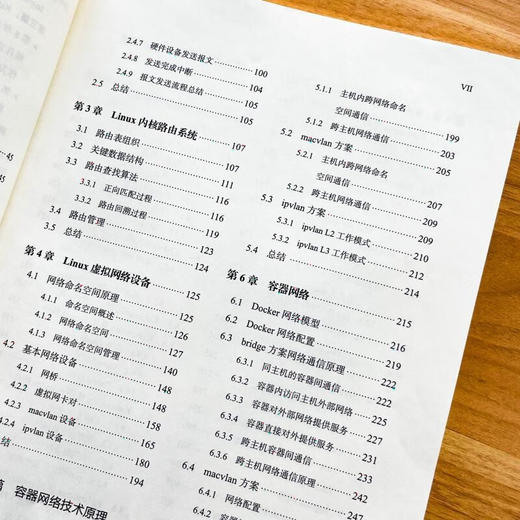 VII
2.4.7 硬件设备发送报文 100
2.4.8 发送完成中断 104
2.4.9 报文发送流程总结 105
2.5 总结 105
第3章 Linux内核路由系统 107
3.1 路由表组织 107
3.2 关键数据结构 111
3.3 路由查找算法 116
3.3.1 正向匹配过程 116
3.3.2 路由回溯过程 119
3.4 路由管理 123
3.5 总结 124
第4章 Linux虚拟网络设备 125
4.1 网络命名空间原理 125
4.1.1 命名空间概述 126
4.1.2 网络命名空间 127
4.1.3 网络命名空间管理 140
4.2 基本网络设备 148
4.2.1 网桥 148
4.2.2 虚拟网卡对 158
4.2.3 macvlan设备 165
4.2.4 ipvlan设备 180
总结 194
篇 容器网络技术原理
5.1.1 主机内跨网络命名
空间通信 199
5.1.2 跨主机网络通信 203
5.2 macvlan方案 205
5.2.1 主机内跨网络命名
空间通信 207
5.2.2 跨主机网络通信 209
5.3 ipvlan方案 209
5.3.1 ipvlan L2工作模式
5.3.2 ipvlan L3工作模式 212
5.4 总结 214
第6章 容器网络 215
6.1 Docker网络模型
6.2 Docker网络配置 216
6.3 bridge方案网络通信原理 222
6.3.1 同主机的容器间通信 222
6.3.2 容器内访问主机外部网络 225
6.3.3 容器对外部网络提供服务 227
6.3.4 容器直接对外提供服务 231
6.3.5 跨主机容器间通信 233
6.3.6 跨主机网络通信原理 242
6.4 macvlan方案 247
6.4.1 网络配置
45
45